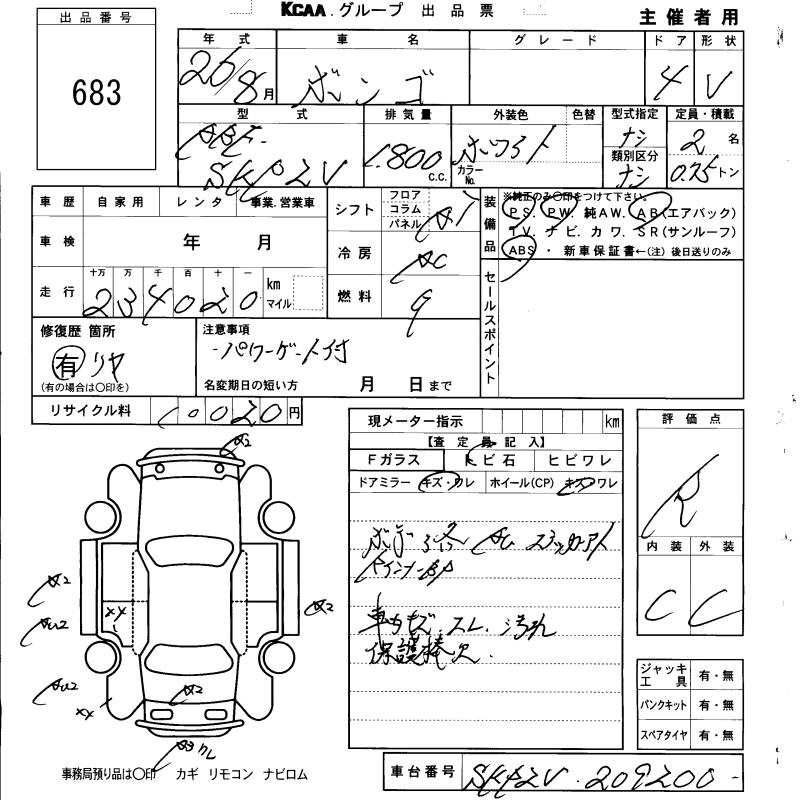 KCAA.グループ 出品票
主催者用
出品番号
683
年式 車名 グレード ドア 形状
26/8月 ボンゴ 4 V
型式 排気量 外装色 色替 型式指定 定員・積載
ABF-
SKP2V
1.800 C.C.
ホワイト
カラーNo.
ナシ
類別区分
ナシ
2 名
0.75 トン
車歴 自家用 レンタ 事業.営業車
車検 年 月
走行 十万 万 千 百 十 一
234020 km マイル
シフト フロア コラム パネル AT
冷房 AC
燃料 G
装備品
※純正のみ〇印をつけて下さい。
PS. PW. 純AW. AB(エアバック)
TV. ナビ. カワ. SR(サンルーフ)
ABS ・ 新車保証書←(注)後日送りのみ
セールスポイント
修復歴 箇所
有 リヤ
(有の場合は〇印を)
注意事項
・パワーゲート付
名変期日の短い方 月 日まで
リサイクル料 10020円
現メーター指示 km
【査定員記入】
Fガラス トビ石 ヒビワレ
ドアミラー キズ・ワレ ホイール(CP) キズ・ワレ
ペイント
車内キズ. スレ. 汚れ
保護棒欠.
評価点
R
内装 外装
C C
A2
A2
AU2
AU2
XX
XX
A2
A2
ジャッキ工具 有・無
パンクキット 有・無
スペアタイヤ 有・無
事務局預り品は〇印 カギ リモコン ナビロム
車台番号 SKP2V-209200-